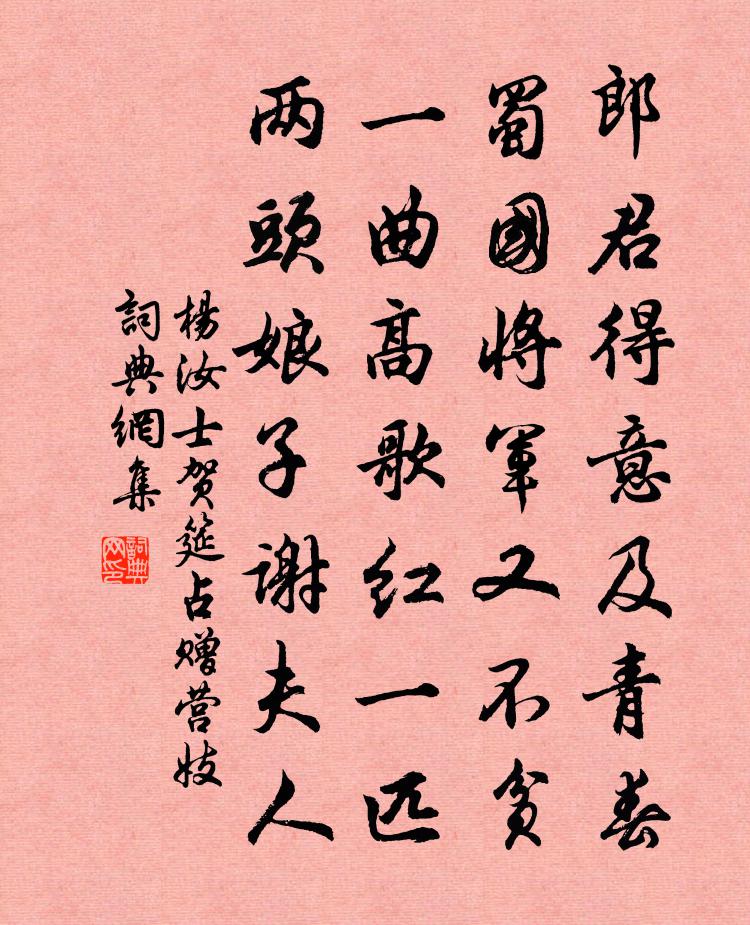 郎君得意及青春
蜀國將軍又不貧
一曲高歌紅一匹
两頭娘子謝夫人
楊汝士賀筵占赠营妓
詞典網集
詞典网印